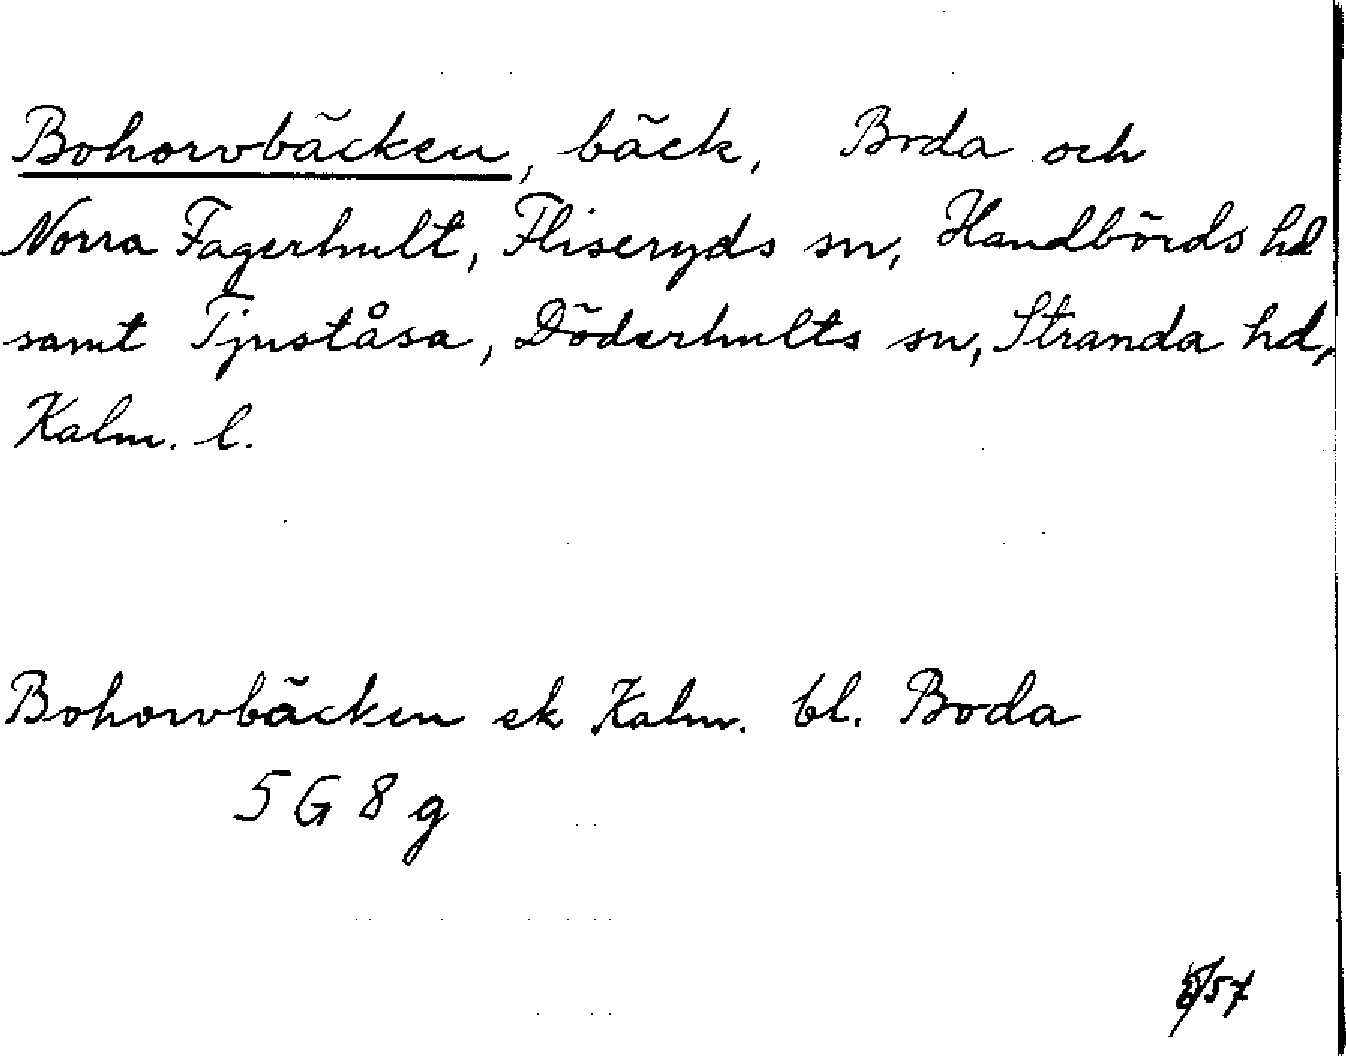 Bohorvbäcken, bäck, Boda och
Norra Fagerhult, Fliseryds sn, Handbörds hd
samt Tjuståsa, Döderhults sn, Stranda hd,
Kalm. l.
Bohorvbäcken ek Kalm. bl. Boda
5 G 8 g